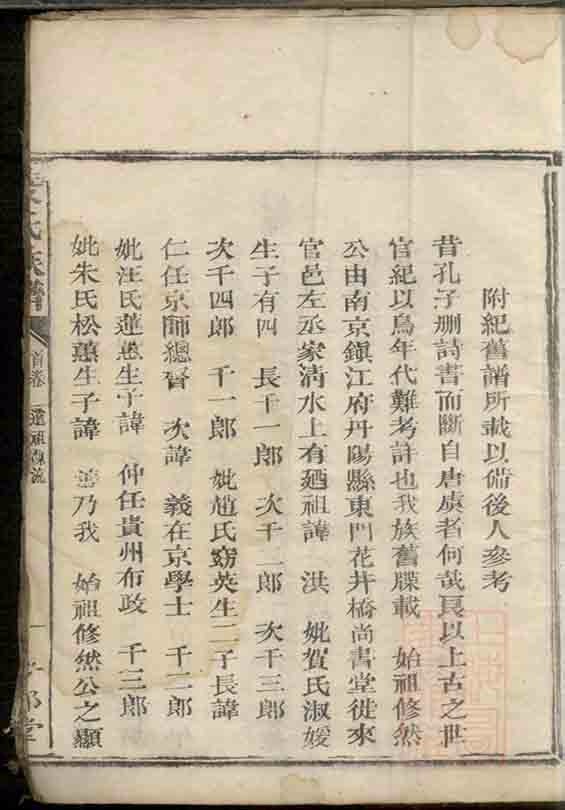 附紀舊譜所載以備後人參考
昔孔子刪詩書而斷自唐虞者何哉良以上古之世
官紀以鳥年代難考詳也我族舊牒載　始祖修然
公由南京鎮江府丹陽縣東門花井橋尚書堂徙來
官邑左丞家清水上有廼祖諱　洪　妣賀氏淑媛
生子有四　長千一郎　次千二郎　次千三郎
次千四郎　千一郎　妣趙氏窈英生二子長諱
仁任京師總督　次諱　義在京學士　千二郎
妣汪氏蓮蕙生子諱　仲任貴州布政　千三郎
妣朱氏松蕙生子諱　善乃我　始祖修然公之顯
氏族譜
首卷　遷祖源流
一
堂